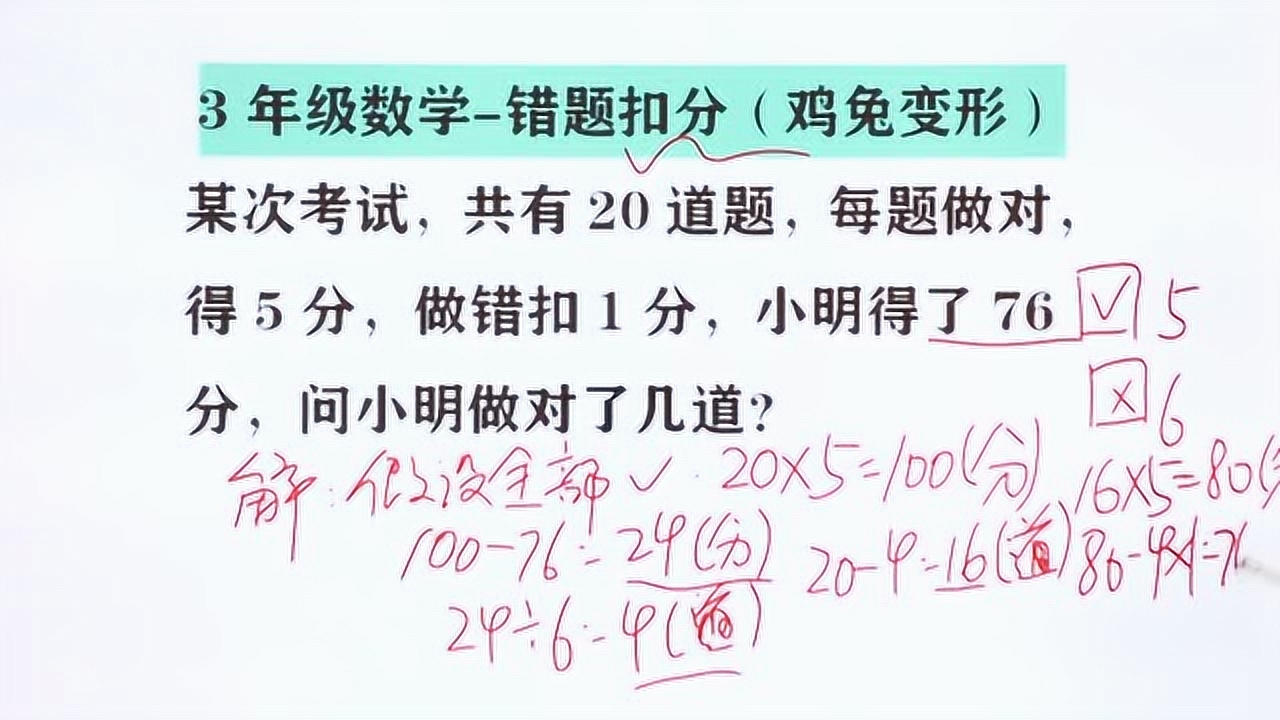 3 年级数学-错题扣分（鸡兔变形）
某次考试，共有 20 道题，每题做对，
得 5 分，做错扣 1 分，小明得了 76
✓ 5
分，问小明做对了几道？
× 6
解:假设全部✓. 20×5=100(分)
16×5=80(分
100-76=24(分)
20-4=16(道)
80-4×1=76
24÷6=4(道)